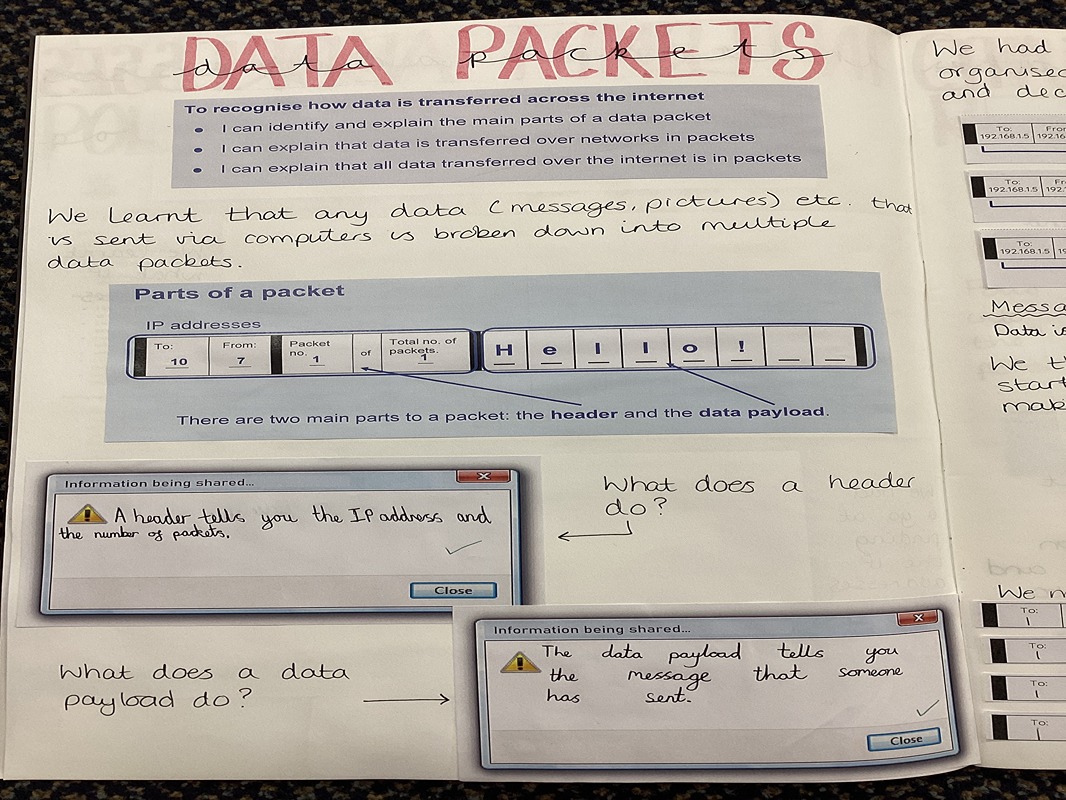 DATA PACKETS
data packets
To recognise how data is transferred across the internet
• I can identify and explain the main parts of a data packet
• I can explain that data is transferred over networks in packets
• I can explain that all data transferred over the internet is in packets
We learnt that any data (messages, pictures) etc. that
is sent via computers is broken down into multiple
data packets.
Parts of a packet
IP addresses
To: From: Packet no. of Total no. of packets.
10 7 1 1 H e l l o ! _ _
There are two main parts to a packet: the header and the data payload.
Information being shared...
A header tells you the IP address and
the number of packets.
Close
What does a header
do?
What does a data
payload do?
Information being shared...
The data payload tells you
the message that someone
has sent.
Close
We had
organised
and
To:
192.168.1.5
To:
192.168.1.5
To:
192.168.1.5
Data is
We
To:
1
To:
1
To:
1
To:
1